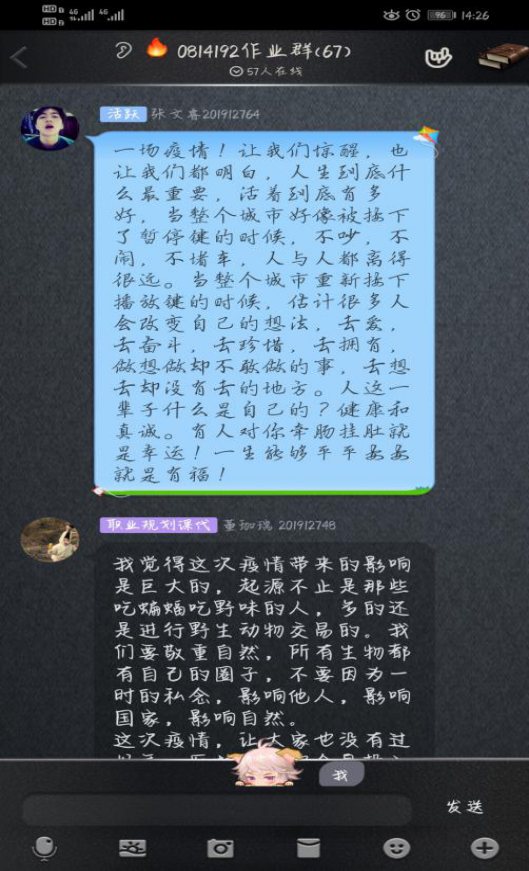 HD 4G 4G 96 14:26
HD
0814192作业群(67)
57人在线
活跃 张文睿201912764
一场疫情！让我们惊醒，也
让我们都明白，人生到底什
么最重要，活着到底有多
好，当整个城市好像被按下
了暂停键的时候，不吵，不
闹，不堵车，人与人都离得
很远。当整个城市重新按下
播放键的时候，估计很多人
会改变自己的想法，去爱，
去奋斗，去珍惜，去拥有，
做想做却不敢做的事，去想
去却没有去的地方。人这一
辈子什么是自己的？健康和
真诚。有人对你牵肠挂肚就
是幸运！一生能够平平安安
就是有福！
职业规划课代 董珈瑞 201912748
我觉得这次疫情带来的影响
是巨大的，起源不止是那些
吃蝙蝠吃野味的人，多的还
是进行野生动物交易的。我
们要敬重自然，所有生物都
有自己的圈子，不要因为一
时的私念，影响他人，影响
国家，影响自然。
这次疫情，让大家也没有过
我
发送